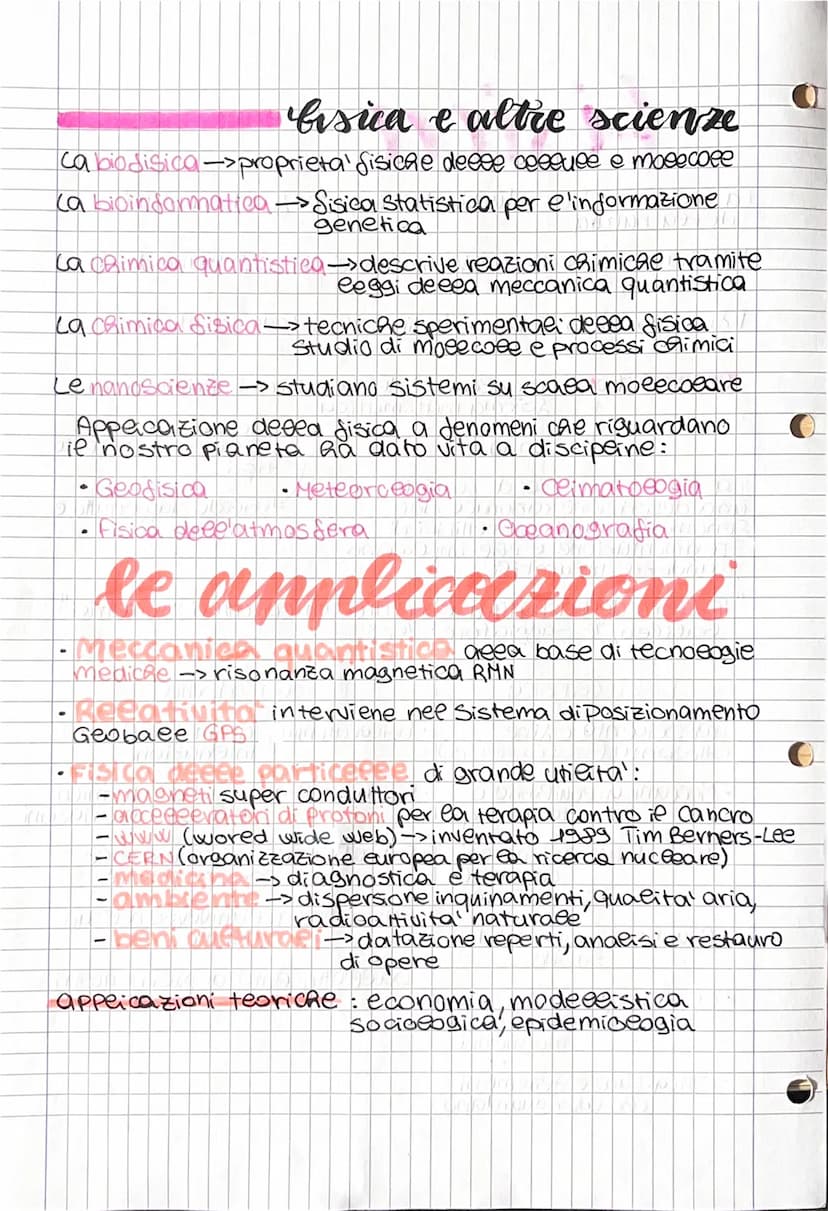 fisica e altre scienze
La biofisica -> proprietà fisiche delle cellule e molecole
La bioinformatica -> fisica statistica per l'informazione
genetica
La chimica quantistica -> descrive reazioni chimiche tramite
leggi della meccanica quantistica
La chimica fisica -> tecniche sperimentali della fisica
studio di molecole e processi chimici
Le nanoscienze -> studiano sistemi su scala molecolare
Applicazione della fisica a fenomeni che riguardano
il nostro pianeta ha dato vita a discipline:
• Geofisica • Meteorologia • Climatologia
• Fisica dell'atmosfera • Oceanografia
le applicazioni
• Meccanica quantistica alla base di tecnologie
mediche -> risonanza magnetica RMN
• Relatività interviene nel Sistema di Posizionamento
Globale GPS
• Fisica delle particelle di grande utilità:
- magneti super conduttori
- acceleratori di protoni per la terapia contro il cancro
- www (world wide web) -> inventato 1989 Tim Berners-Lee
- CERN (organizzazione europea per la ricerca nucleare)
- medicina -> diagnostica e terapia
- ambiente -> dispersione inquinamenti, qualità aria,
radioattività naturale
- beni culturali -> datazione reperti, analisi e restauro
di opere
applicazioni teoriche : economia, modellistica
sociologica, epidemiologia